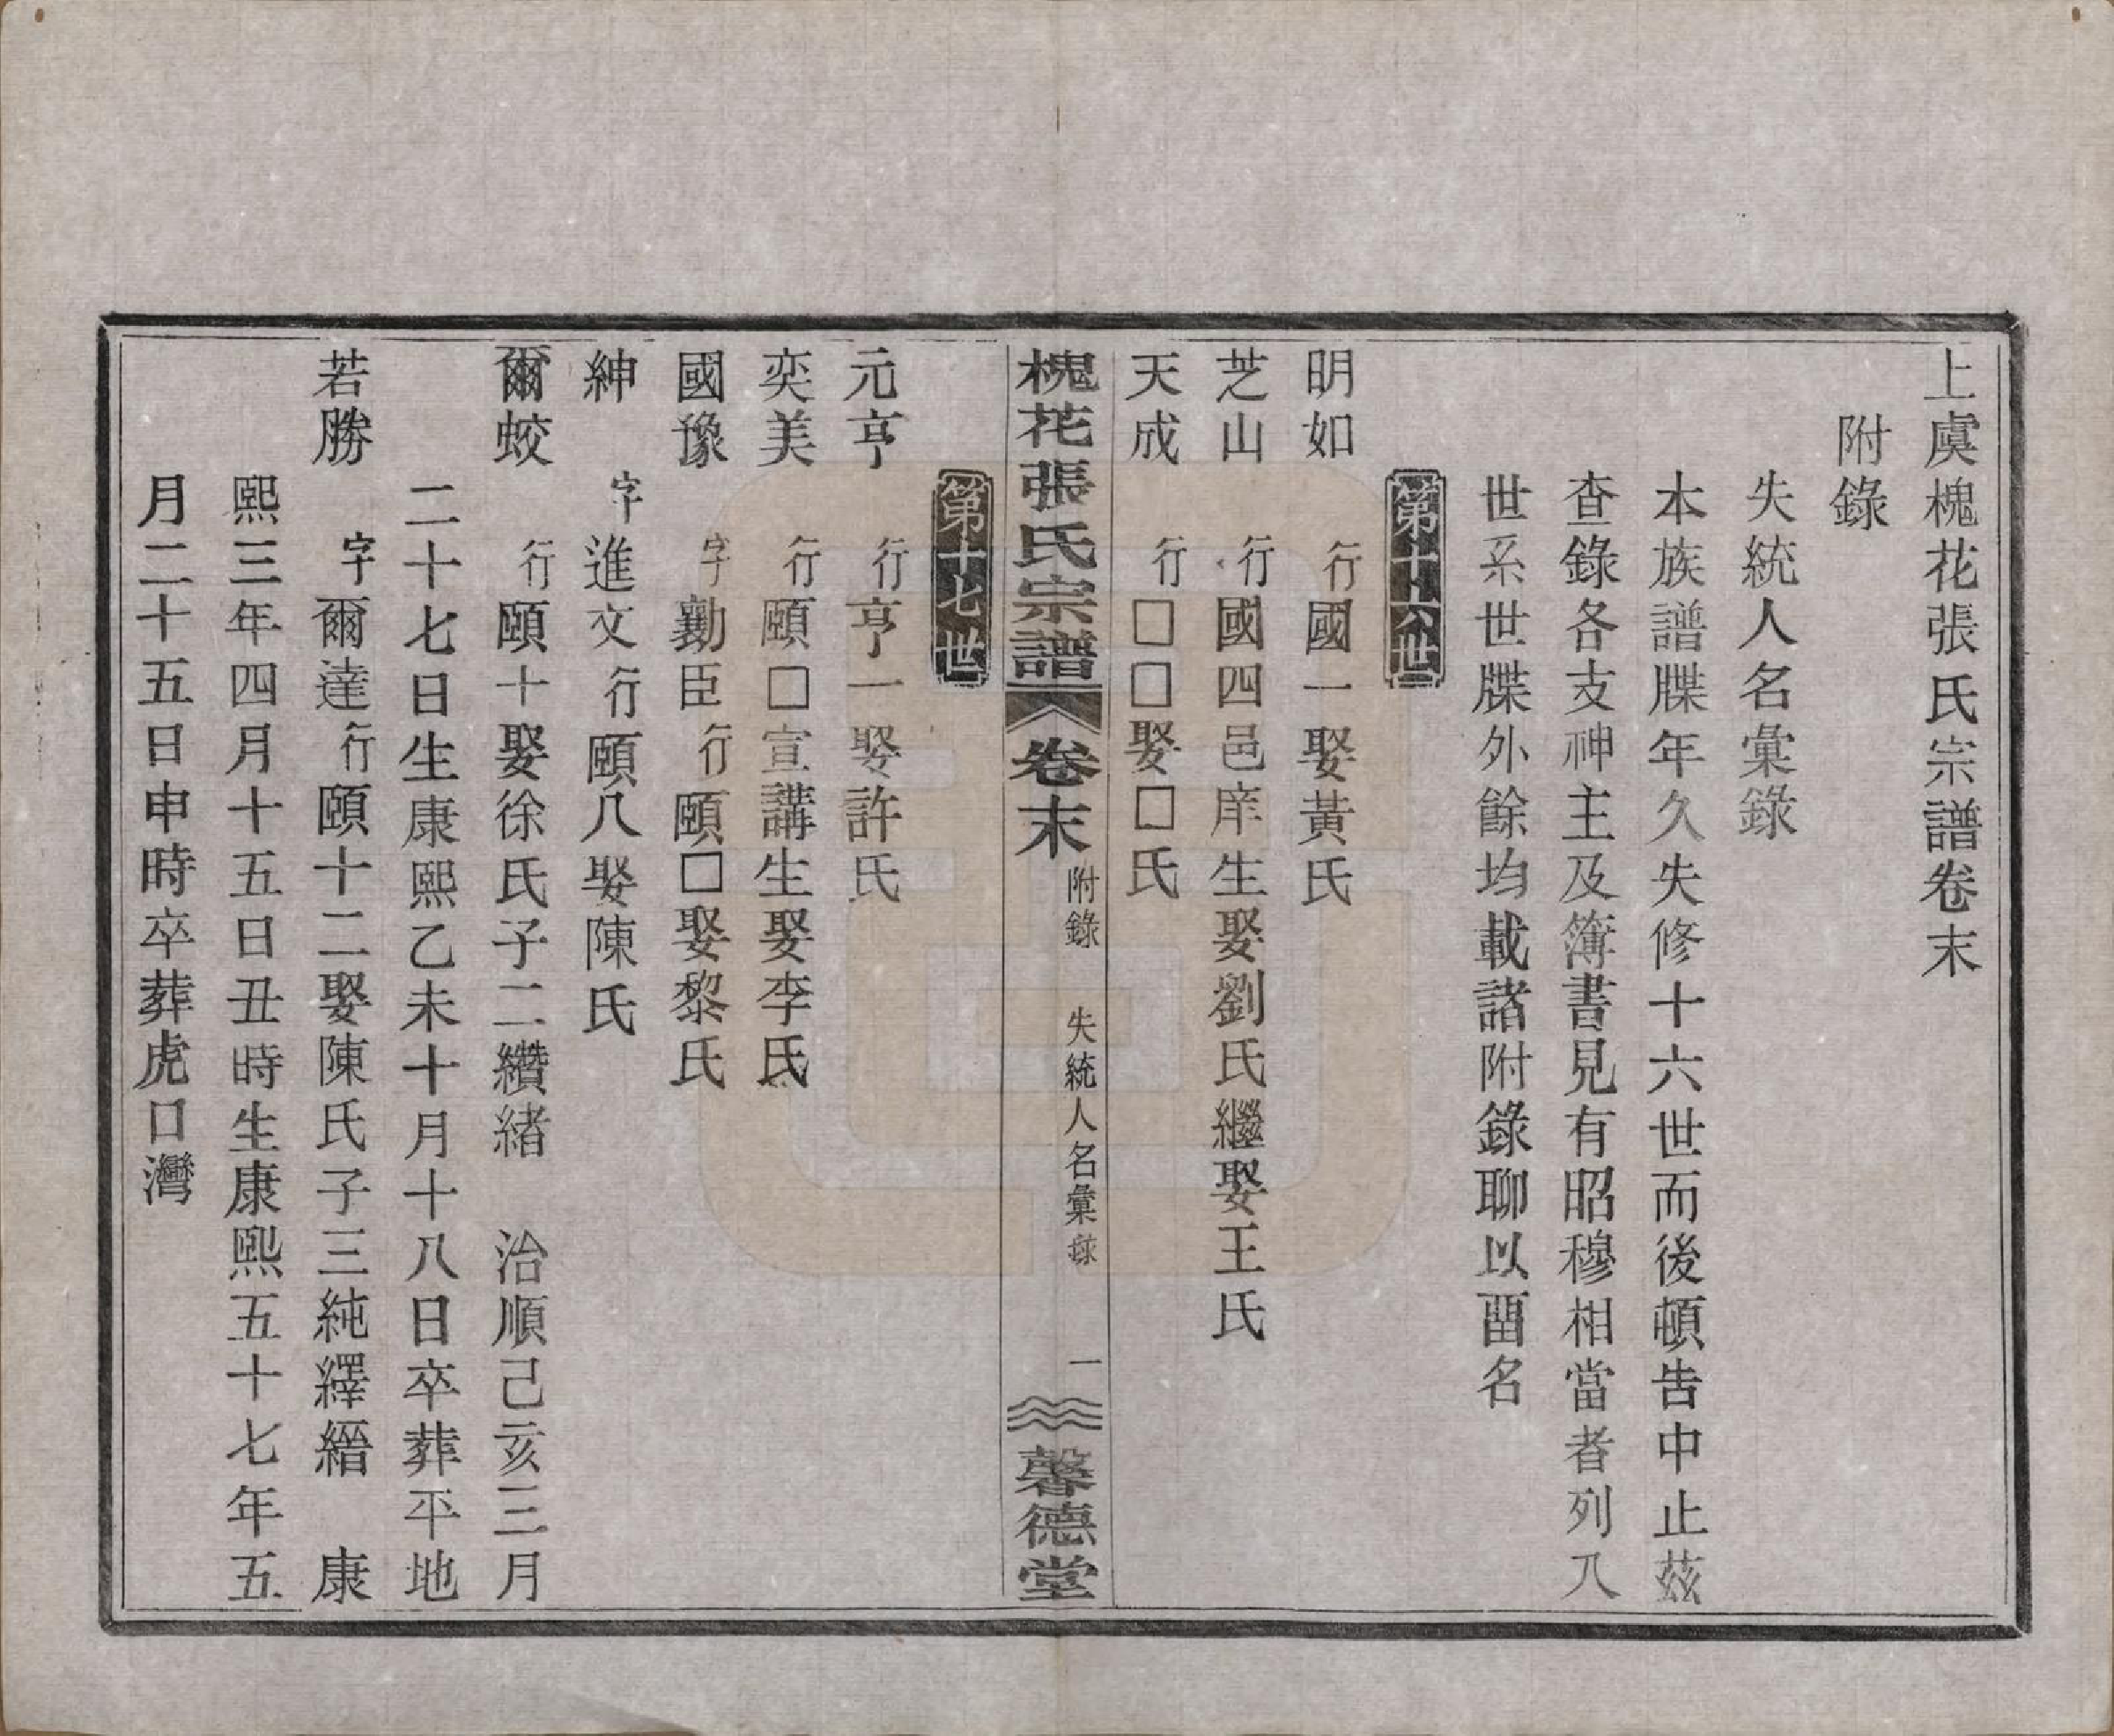 上虞槐花張氏宗譜卷末
附錄
失統人名彙錄
本族譜牒年久失修十六世而後頓告中止茲
查錄各支神主及簿書見有昭穆相當者列入
世系世牒外餘均載諸附錄聊以畱名
第十六世
明如　行國一娶黃氏
芝山　行國四邑庠生娶劉氏繼娶王氏
天成　行□□娶□氏
槐花張氏宗譜　卷末　附錄　失統人名彙錄　一　馨德堂
第十七世
元亨　行亨一娶許氏
奕美　行頤□宣講生娶李氏
國豫　字勷臣行頤□娶黎氏
紳　字進文行頤八娶陳氏
爾蛟　行頤十娶徐氏子二纘緒　治順己亥三月
二十七日生康熙乙未十月十八日卒葬平地
若勝　字爾達行頤十二娶陳氏子三純繹縉　康
熙三年四月十五日丑時生康熙五十七年五
月二十五日申時卒葬虎口灣